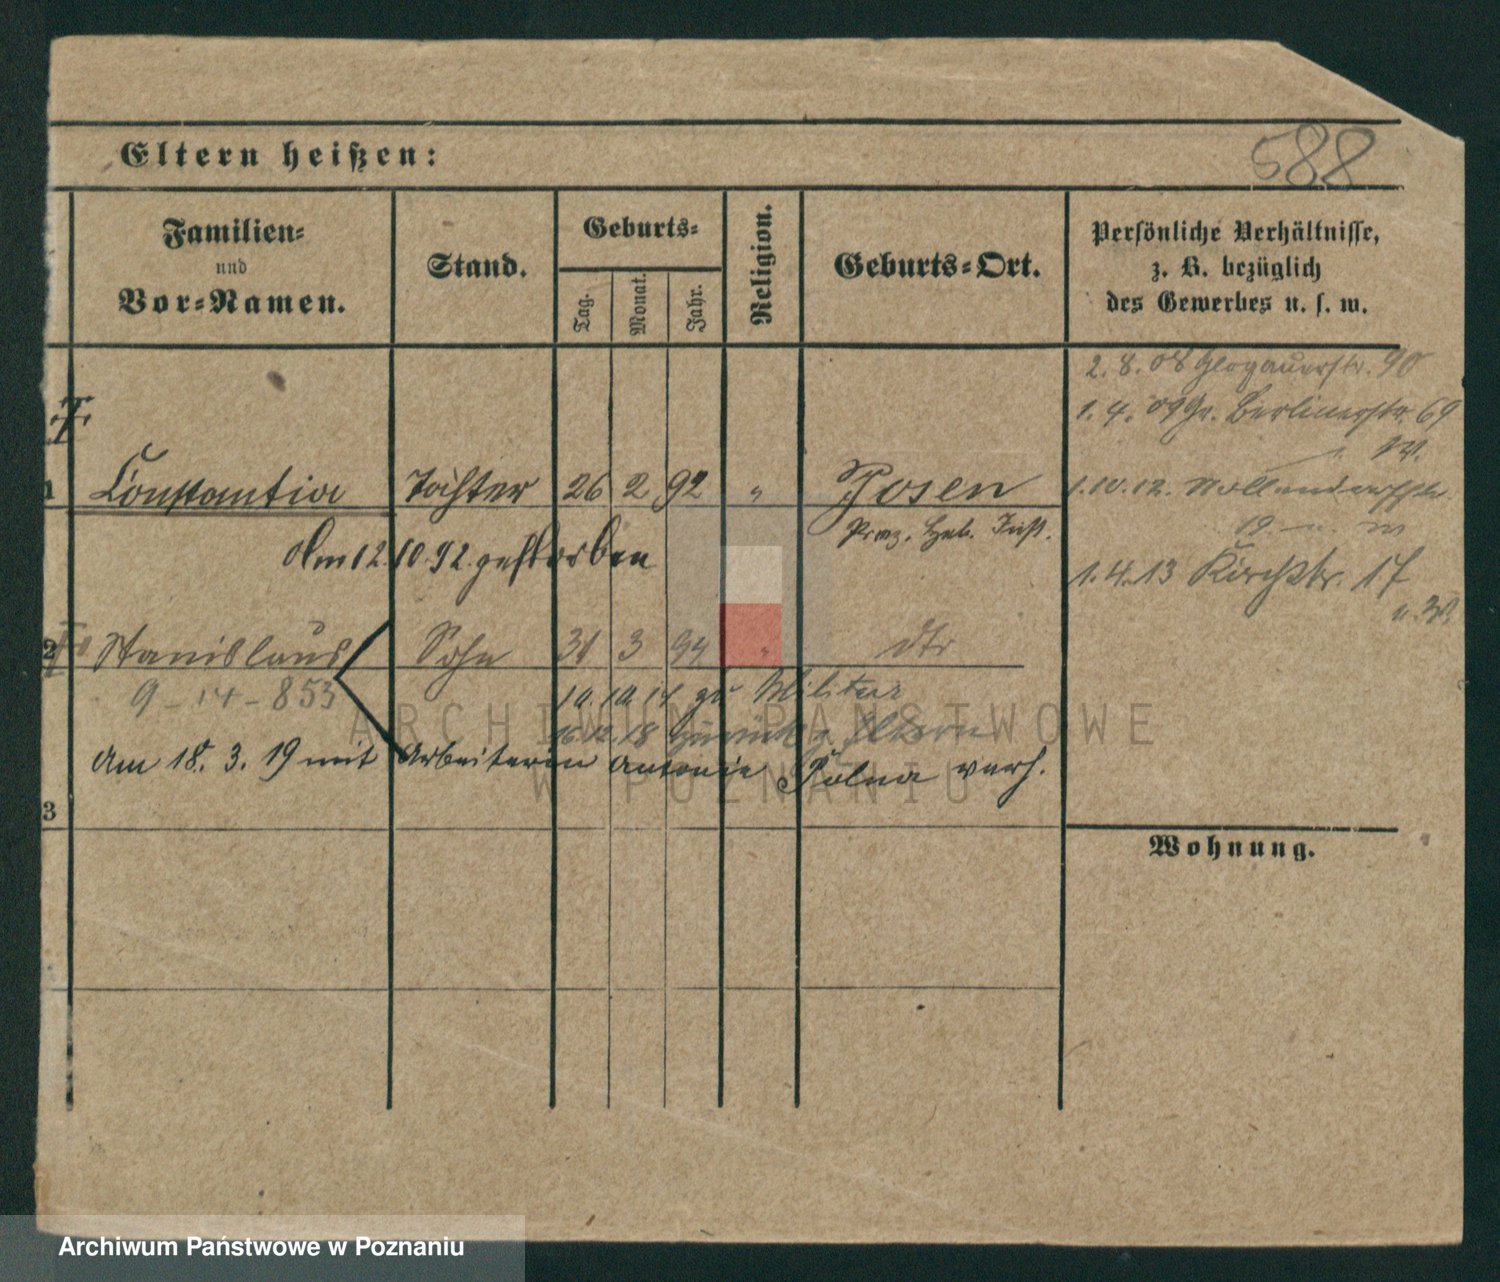 588
Eltern heißen:
Familien-
und
Vor-Namen.
Stand.
Geburts-
Tag.
Monat.
Jahr.
Religion.
Geburts-Ort.
Persönliche Verhältnisse,
z. B. bezüglich
des Gewerbes u. s. w.
2. 8. 08 Glogauerstr. 90
1. 4. 09 Gr. Berlinerstr. 69
1 Constantia Tochter 26 2 92 " Posen
1. 10. 12. Nollendorfstr.
19
Prov. Heb. Inst.
Am 12.10.92. gestorben
1. 4. 13 Kirchstr. 17
2 Stanislaus Sohn 31 3 94 " dto
9-14-853
10. 10. 14 zu Militär
16.12.18 zurück z. Eltern
Am 18. 3. 19 mit Arbeiterin Antonie Polna verh.
3
Wohnung.
ARCHIWUM PAŃSTWOWE
W POZNANIU
Archiwum Państwowe w Poznaniu